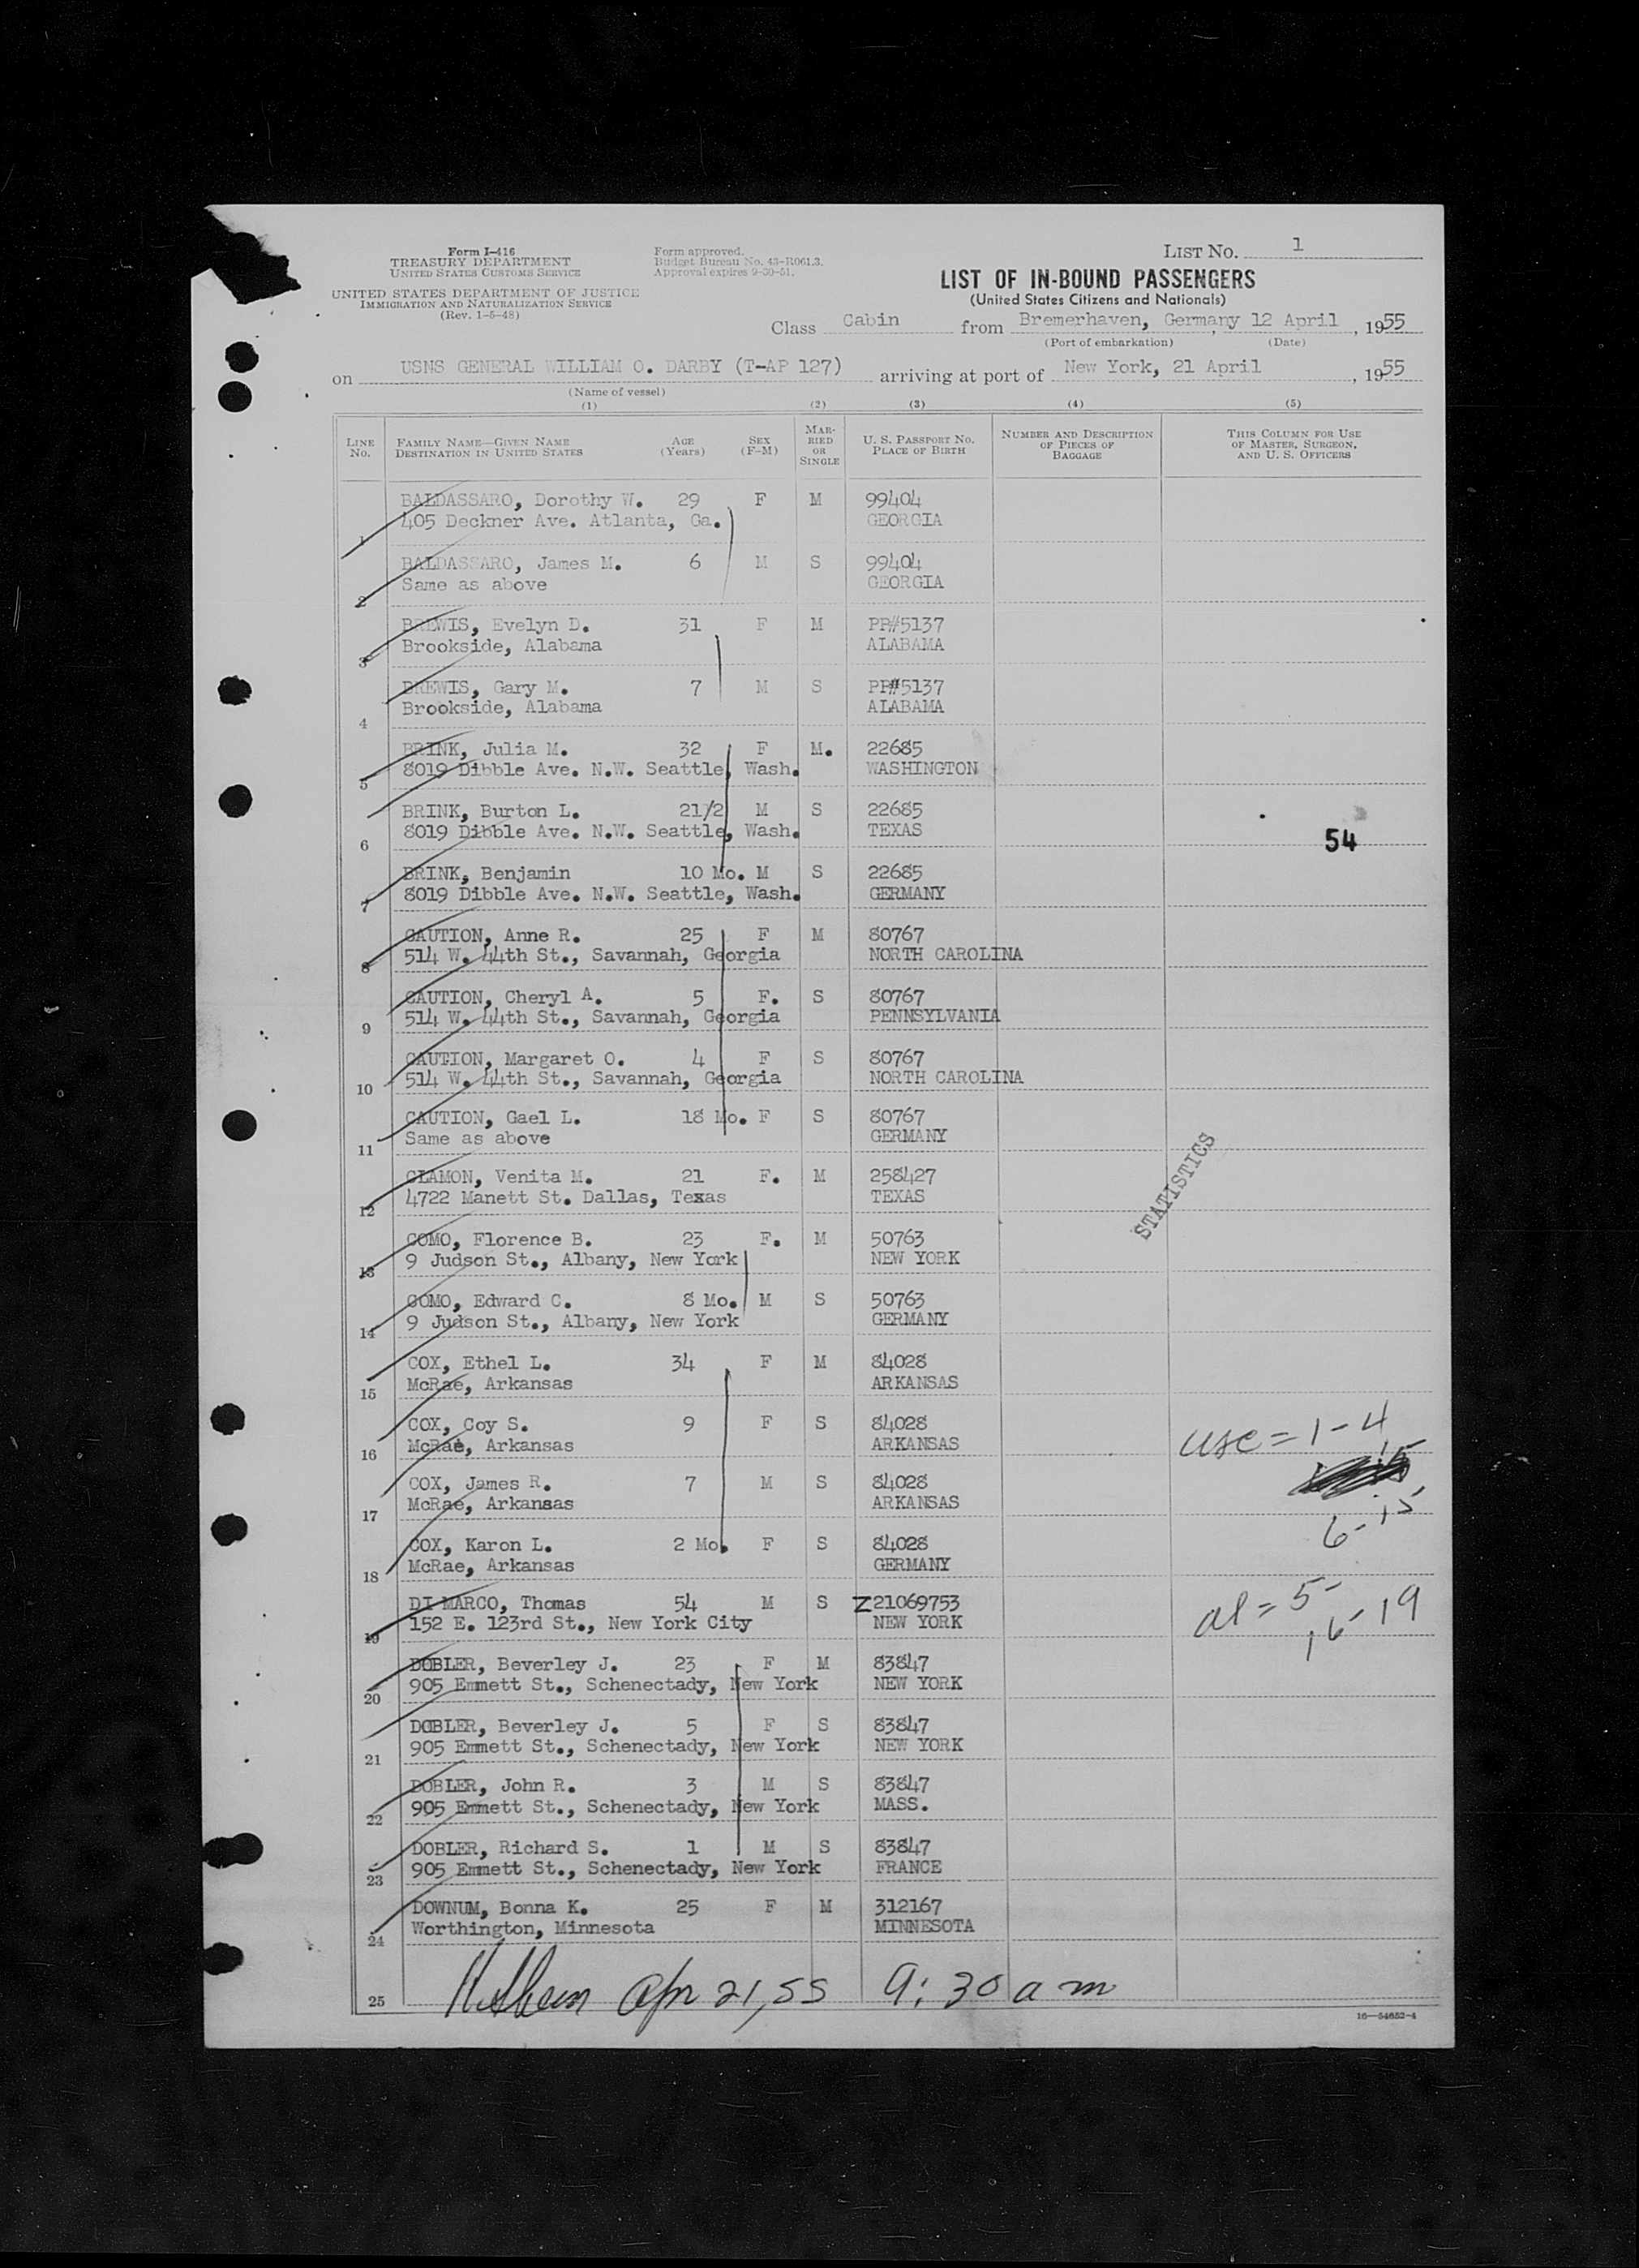 Form I-416
TREASURY DEPARTMENT
UNITED STATES CUSTOMS SERVICE
UNITED STATES DEPARTMENT OF JUSTICE
IMMIGRATION AND NATURALIZATION SERVICE
(Rev. 1-5-48)
Form approved.
Budget Bureau No. 43-R061.3.
Approval expires 9-30-51.
LIST NO. 1
LIST OF IN-BOUND PASSENGERS
(United States Citizens and Nationals)
Class Cabin from Bremerhaven, Germany 12 April, 1955
(Port of embarkation) (Date)
on USNS GENERAL WILLIAM O. DARBY (T-AP 127) arriving at port of New York, 21 April, 1955
(Name of vessel)
(1) (2) (3) (4) (5)
LINE NO. FAMILY NAME—GIVEN NAME DESTINATION IN UNITED STATES AGE (Years) SEX (F-M) MARRIED OR SINGLE U. S. PASSPORT NO. PLACE OF BIRTH NUMBER AND DESCRIPTION OF PIECES OF BAGGAGE THIS COLUMN FOR USE OF MASTER, SURGEON, AND U. S. OFFICERS
BALDASSARO, Dorothy W. 29 F M 99404
1 405 Deckner Ave. Atlanta, Ga. GEORGIA
BALDASSARO, James M. 6 M S 99404
2 Same as above GEORGIA
BREWIS, Evelyn D. 31 F M PP#5137
3 Brookside, Alabama ALABAMA
BREWIS, Gary M. 7 M S PP#5137
4 Brookside, Alabama ALABAMA
BRINK, Julia M. 32 F M. 22685
5 8019 Dibble Ave. N.W. Seattle, Wash. WASHINGTON
BRINK, Burton L. 21/2 M S 22685
6 8019 Dibble Ave. N.W. Seattle, Wash. TEXAS 54
BRINK, Benjamin 10 Mo. M S 22685
7 8019 Dibble Ave. N.W. Seattle, Wash. GERMANY
CAUTION, Anne R. 25 F M 80767
8 514 W. 44th St., Savannah, Georgia NORTH CAROLINA
CAUTION, Cheryl A. 5 F. S 80767
9 514 W. 44th St., Savannah, Georgia PENNSYLVANIA
CAUTION, Margaret O. 4 F S 80767
10 514 W. 44th St., Savannah, Georgia NORTH CAROLINA
CAUTION, Gael L. 18 Mo. F S 80767
11 Same as above GERMANY
STATISTICS
CLAMON, Venita M. 21 F. M 258427
12 4722 Manett St. Dallas, Texas TEXAS
COMO, Florence B. 23 F. M 50763
13 9 Judson St., Albany, New York NEW YORK
COMO, Edward C. 8 Mo. M S 50763
14 9 Judson St., Albany, New York GERMANY
COX, Ethel L. 34 F M 84028
15 McRae, Arkansas ARKANSAS
COX, Coy S. 9 F S 84028
16 McRae, Arkansas ARKANSAS usc = 1 - 4
COX, James R. 7 M S 84028
17 McRae, Arkansas ARKANSAS 6 - 15
COX, Karon L. 2 Mo. F S 84028
18 McRae, Arkansas GERMANY
DI MARCO, Thomas 54 M S Z21069753 al = 5
19 152 E. 123rd St., New York City NEW YORK 16 - 19
DOBLER, Beverley J. 23 F M 83847
20 905 Emmett St., Schenectady, New York NEW YORK
DOBLER, Beverley J. 5 F S 83847
21 905 Emmett St., Schenectady, New York NEW YORK
DOBLER, John R. 3 M S 83847
22 905 Emmett St., Schenectady, New York MASS.
DOBLER, Richard S. 1 M S 83847
23 905 Emmett St., Schenectady, New York FRANCE
DOWNUM, Bonna K. 25 F M 312167
24 Worthington, Minnesota MINNESOTA
25 Apr 21, 55 9:30 a m
16—54652-4